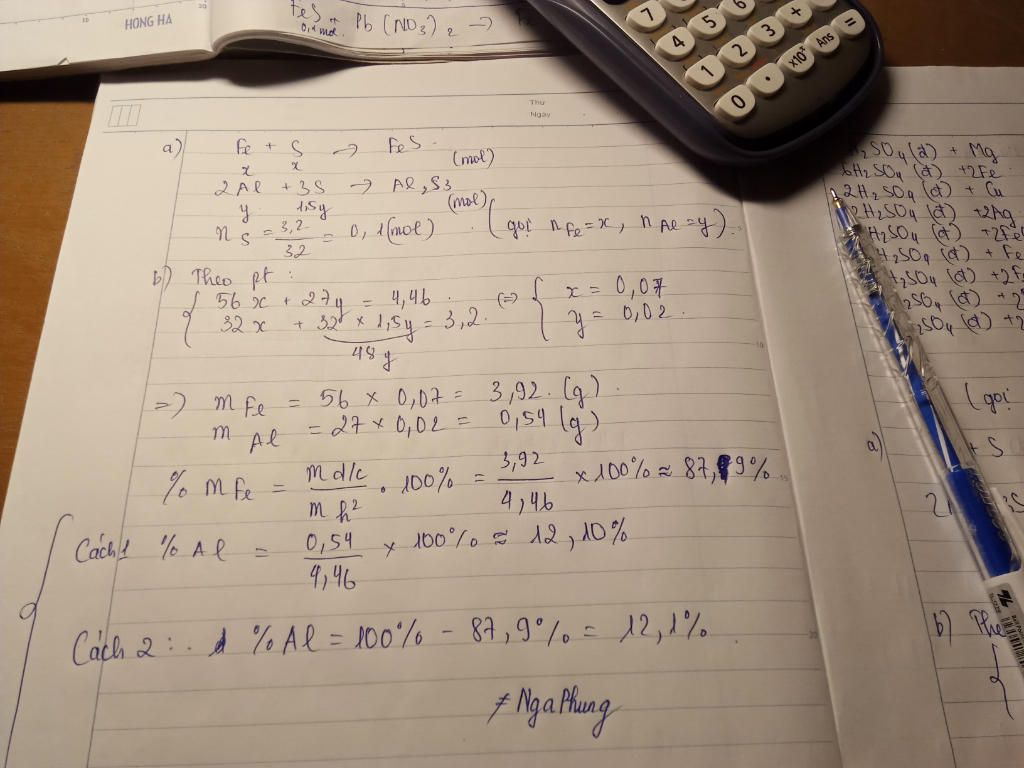 HONG HA
FeS + Pb(NO3)2 →
0,1 mol
7 5 6
4 2 3 +
1 . x10ˣ Ans =
0
Thứ
Ngày
a) Fe + S → FeS.
x x (mol)
2Al + 3S → Al2S3
y 1,5y (mol)
nS = 3,2/32 = 0,1 (mol). (gọi nFe = x, nAl = y).
b) Theo pt:
{ 56x + 27y = 4,46. (=) { x = 0,07
32x + 32 × 1,5y = 3,2. y = 0,02.
48y
=) mFe = 56 × 0,07 = 3,92. (g).
mAl = 27 × 0,02 = 0,54 (g)
% mFe = m đ/c / m h² . 100% = 3,92/4,46 × 100% ≈ 87,9%
Cách 1 % Al = 0,54/4,46 × 100% ≈ 12,10%
Cách 2 : % Al = 100% - 87,9% = 12,1%.
≠ NgaPhung
H2SO4 (đ) + Mg
6H2SO4 (đ) + 2Fe
2H2SO4 (đ) + Cu
2H2SO4 (đ) + 2Ag
H2SO4 (đ) + 2Fe
H2SO4 (đ) + Fe
H2SO4 (đ) + 2F
H2SO4 (đ) + 2
H2SO4 (đ) + 2
(gọi
a) + S
2
3S
b) The
{